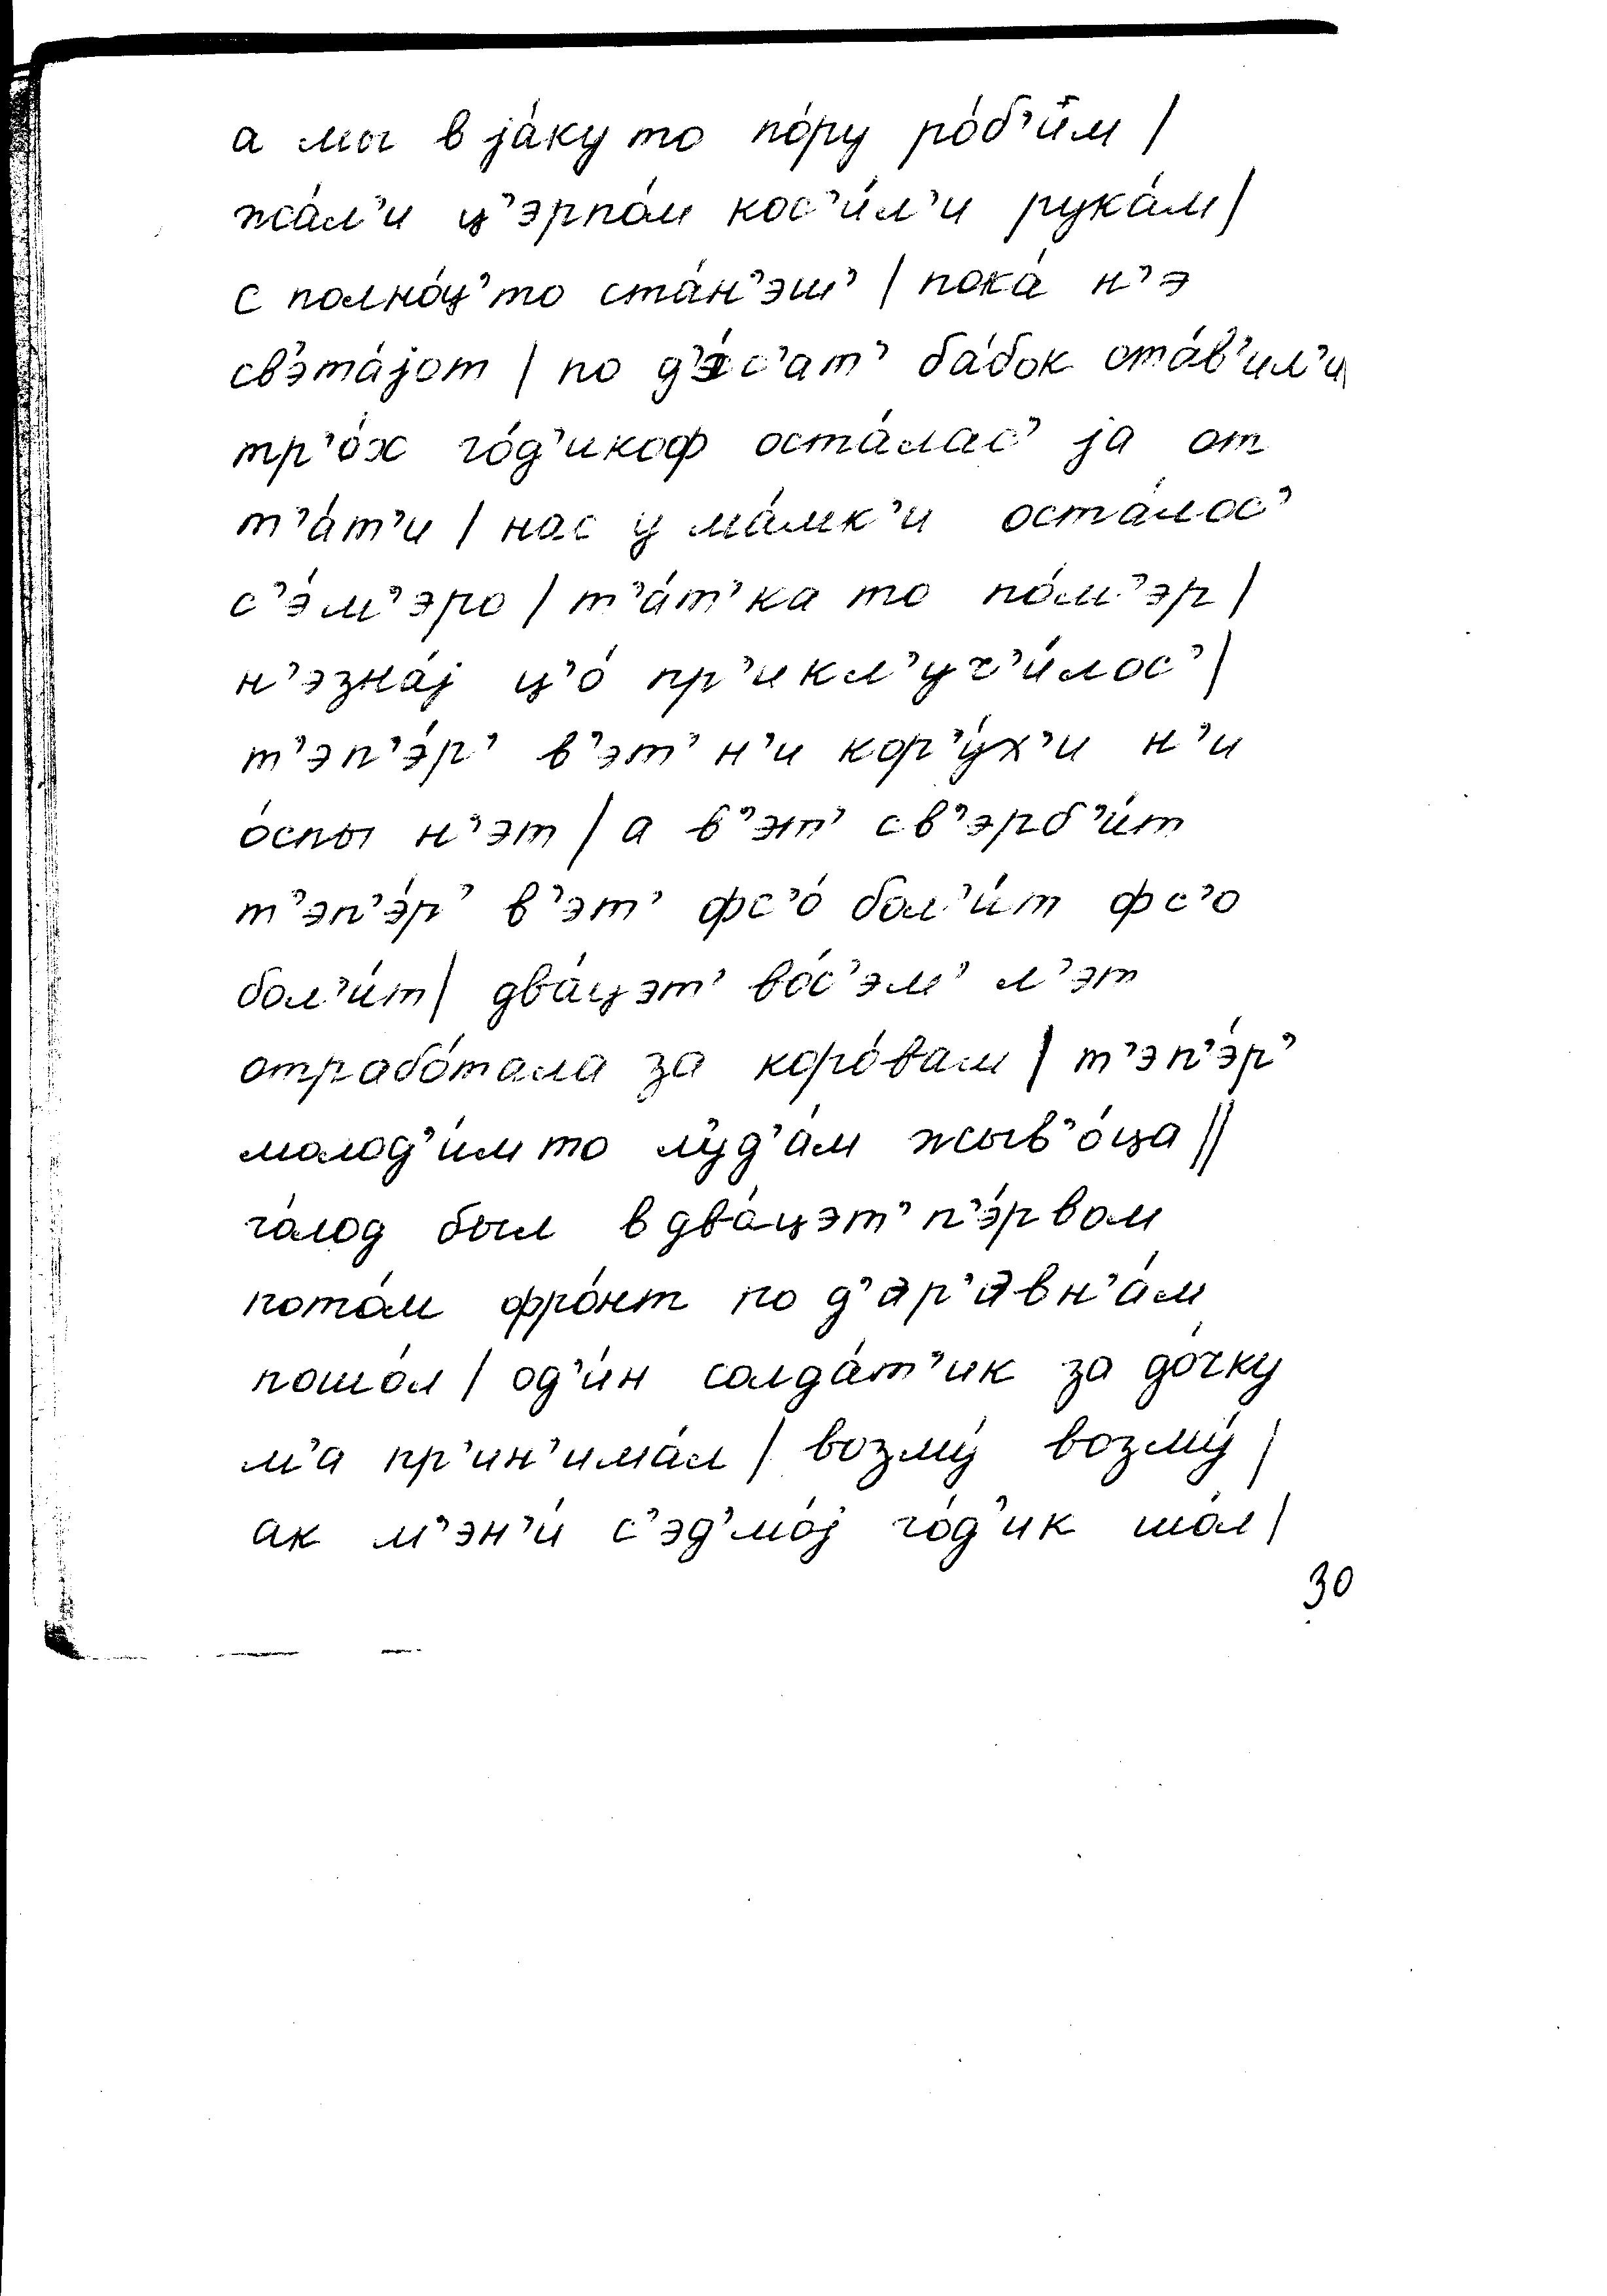 а мы в jа́ку то по́ру ро́б’им |
жа́л’и ц’эрпо́м кос’и́л’и рука́м |
с полно́ц’то ста́н’эш’ | пока́ н’э
св’эта́jот | по д’э́с’ат’ ба́бок ста́в’ил’и |
тр’о́х го́д’икоф оста́лас’ jа от
т’а́т’и | нас у ма́мк’и оста́лос’
с’э́м’эро | т’а́т’ка то по́м’эр |
н’эзна́j ц’о́ пр’икл’уч’и́лос’ |
т’эп’э́р’ в’эт’ н’и кор’у́х’и н’и
о́спы н’эт | а в’эт’ св’эрб’и́т
т’эп’э́р’ в’эт’ фс’о́ бол’и́т фс’о
бол’и́т | два́цэт’ во́с’эм’ л’эт
отрабо́тала за коро́вам | т’эп’э́р’
молод’и́м то л’уд’а́м жыв’о́ца ||
го́лод был в два́цэт’ п’э́рвом
пото́м фро́нт по д’эр’эвн’а́м
пошо́л | од’и́н солда́т’ик за до́чку
м’а пр’ин’има́л | возму́ возму́ |
ак м’эн’и́ с’эд’мо́j го́д’ик шо́л |
30